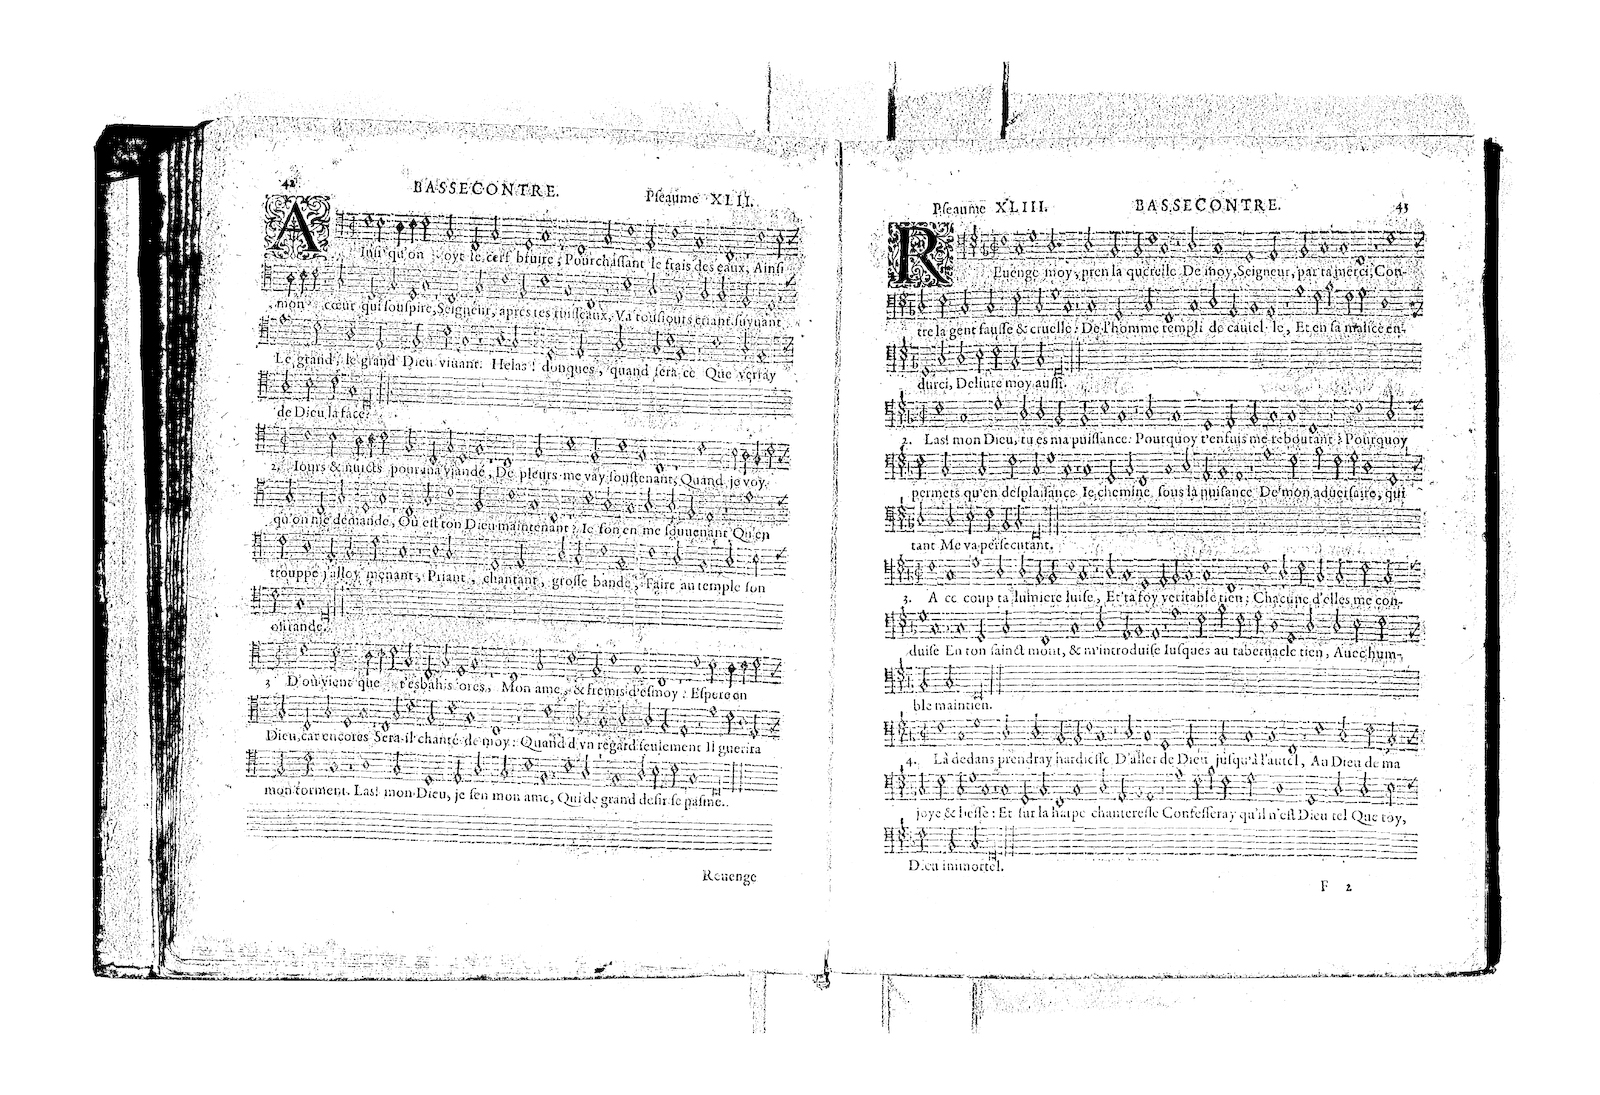 42
BASSECONTRE.
Pſeaume XLII.
Ainſi qu'on oyt le cerf bruire, Pourchaſſant le frais des eaux, Ainſi
mon cœur qui ſouſpire, Seigneur, apres tes ruiſſeaux, Va touſiours criant ſuyuant
Le grand, le grand Dieu viuant. Helas! donques, quand ſera ce Que verray
de Dieu la face?
2. Iours & nuicts pour ma viande, De pleurs me vay ſouſtenant, Quand je voy
qu'on me demande, Où eſt ton Dieu maintenant? Ie fon en me ſouuenant Qu'en
trouppe j'alloy menant, Priant, chantant, groſſe bande, Faire au temple ſon
offrande.
3 D'où vient que t'esbahis ores, Mon ame, & fremis d'eſmoy: Eſpere en
Dieu, car encores Sera-il chanté de moy: Quand d'vn regard ſeulement Il guerira
mon torment. Las! mon Dieu, je ſen mon ame, Qui de grand deſir ſe paſme.
Reuenge
Pſeaume XLIII.
BASSECONTRE.
43
REuenge moy, pren la querelle De moy, Seigneur, par ta merci, Con-
tre la gent fauſſe & cruelle: De l'homme rempli de cautel le, Et en ſa malice en-
durci, Deliure moy auſſi.
2. Las! mon Dieu, tu es ma puiſſance: Pourquoy t'enfuis me reboutant? Pourquoy
permets qu'en deſplaiſance Ie chemine ſous la nuiſance De mon aduerſaire, qui
tant Me va perſecutant.
3. A ce coup ta lumiere luiſe, Et ta foy veritable tien: Chacune d'elles me con-
duiſe En ton ſainct mont, & m'introduiſe Iuſques au tabernacle tien, Auec hum-
ble maintien.
4. Là dedans prendray hardieſſe D'aller de Dieu juſqu'à l'autel, Au Dieu de ma
joye & lieſſe: Et ſur la harpe chantereſſe Confeſſeray qu'il n'eſt Dieu tel Que toy,
Dieu immortel.
F 2